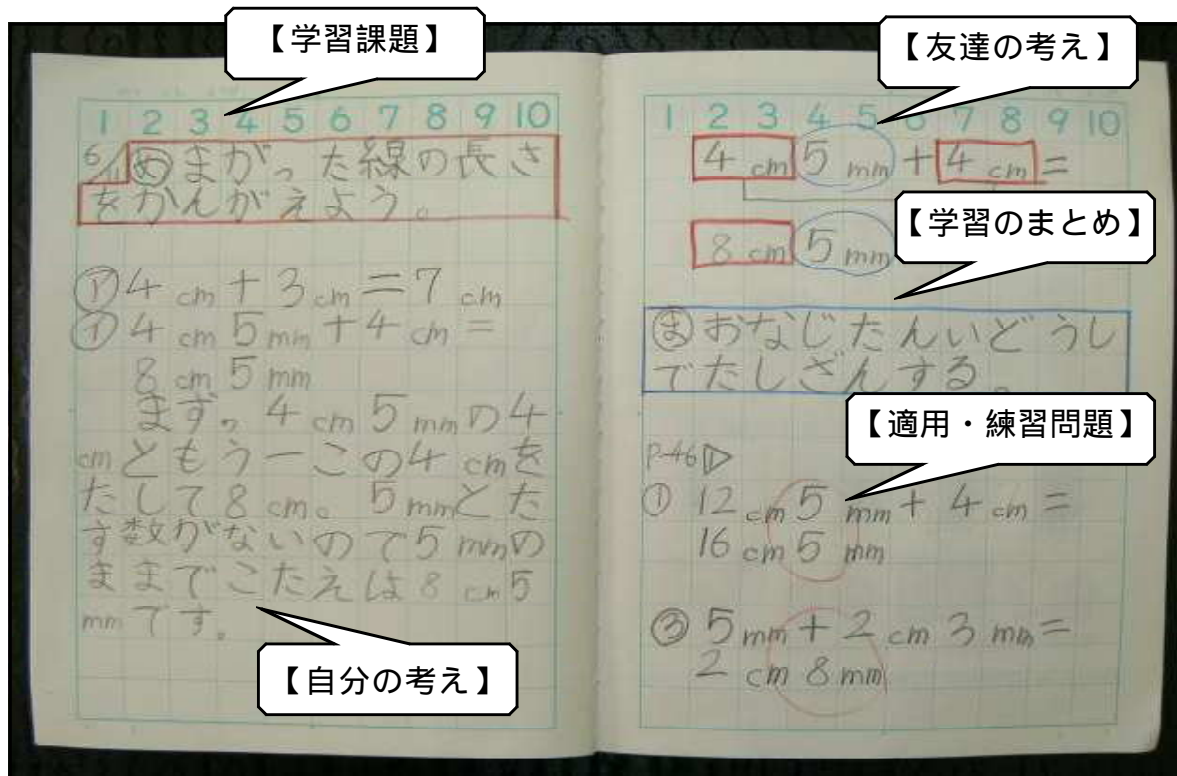 【学習課題】
1 2 3 4 5 6 7 8 9 10
6/11 めまがった線の長さ
をかんがえよう。
ア 4cm+3cm=7cm
イ 4cm5mm+4cm=
8cm5mm
まず。4cm5mmの4
cmともう一この4cmを
たして8cm。5mmとた
す数がないので5mmの
ままでこたえは8cm5
mmです。
【自分の考え】
【友達の考え】
1 2 3 4 5 6 7 8 9 10
4cm5mm+4cm=
8cm5mm
【学習のまとめ】
まおなじたんいどうし
でたしざんする。
【適用・練習問題】
P.46
① 12cm5mm+4cm=
16cm5mm
③ 5mm+2cm3mm=
2cm8mm